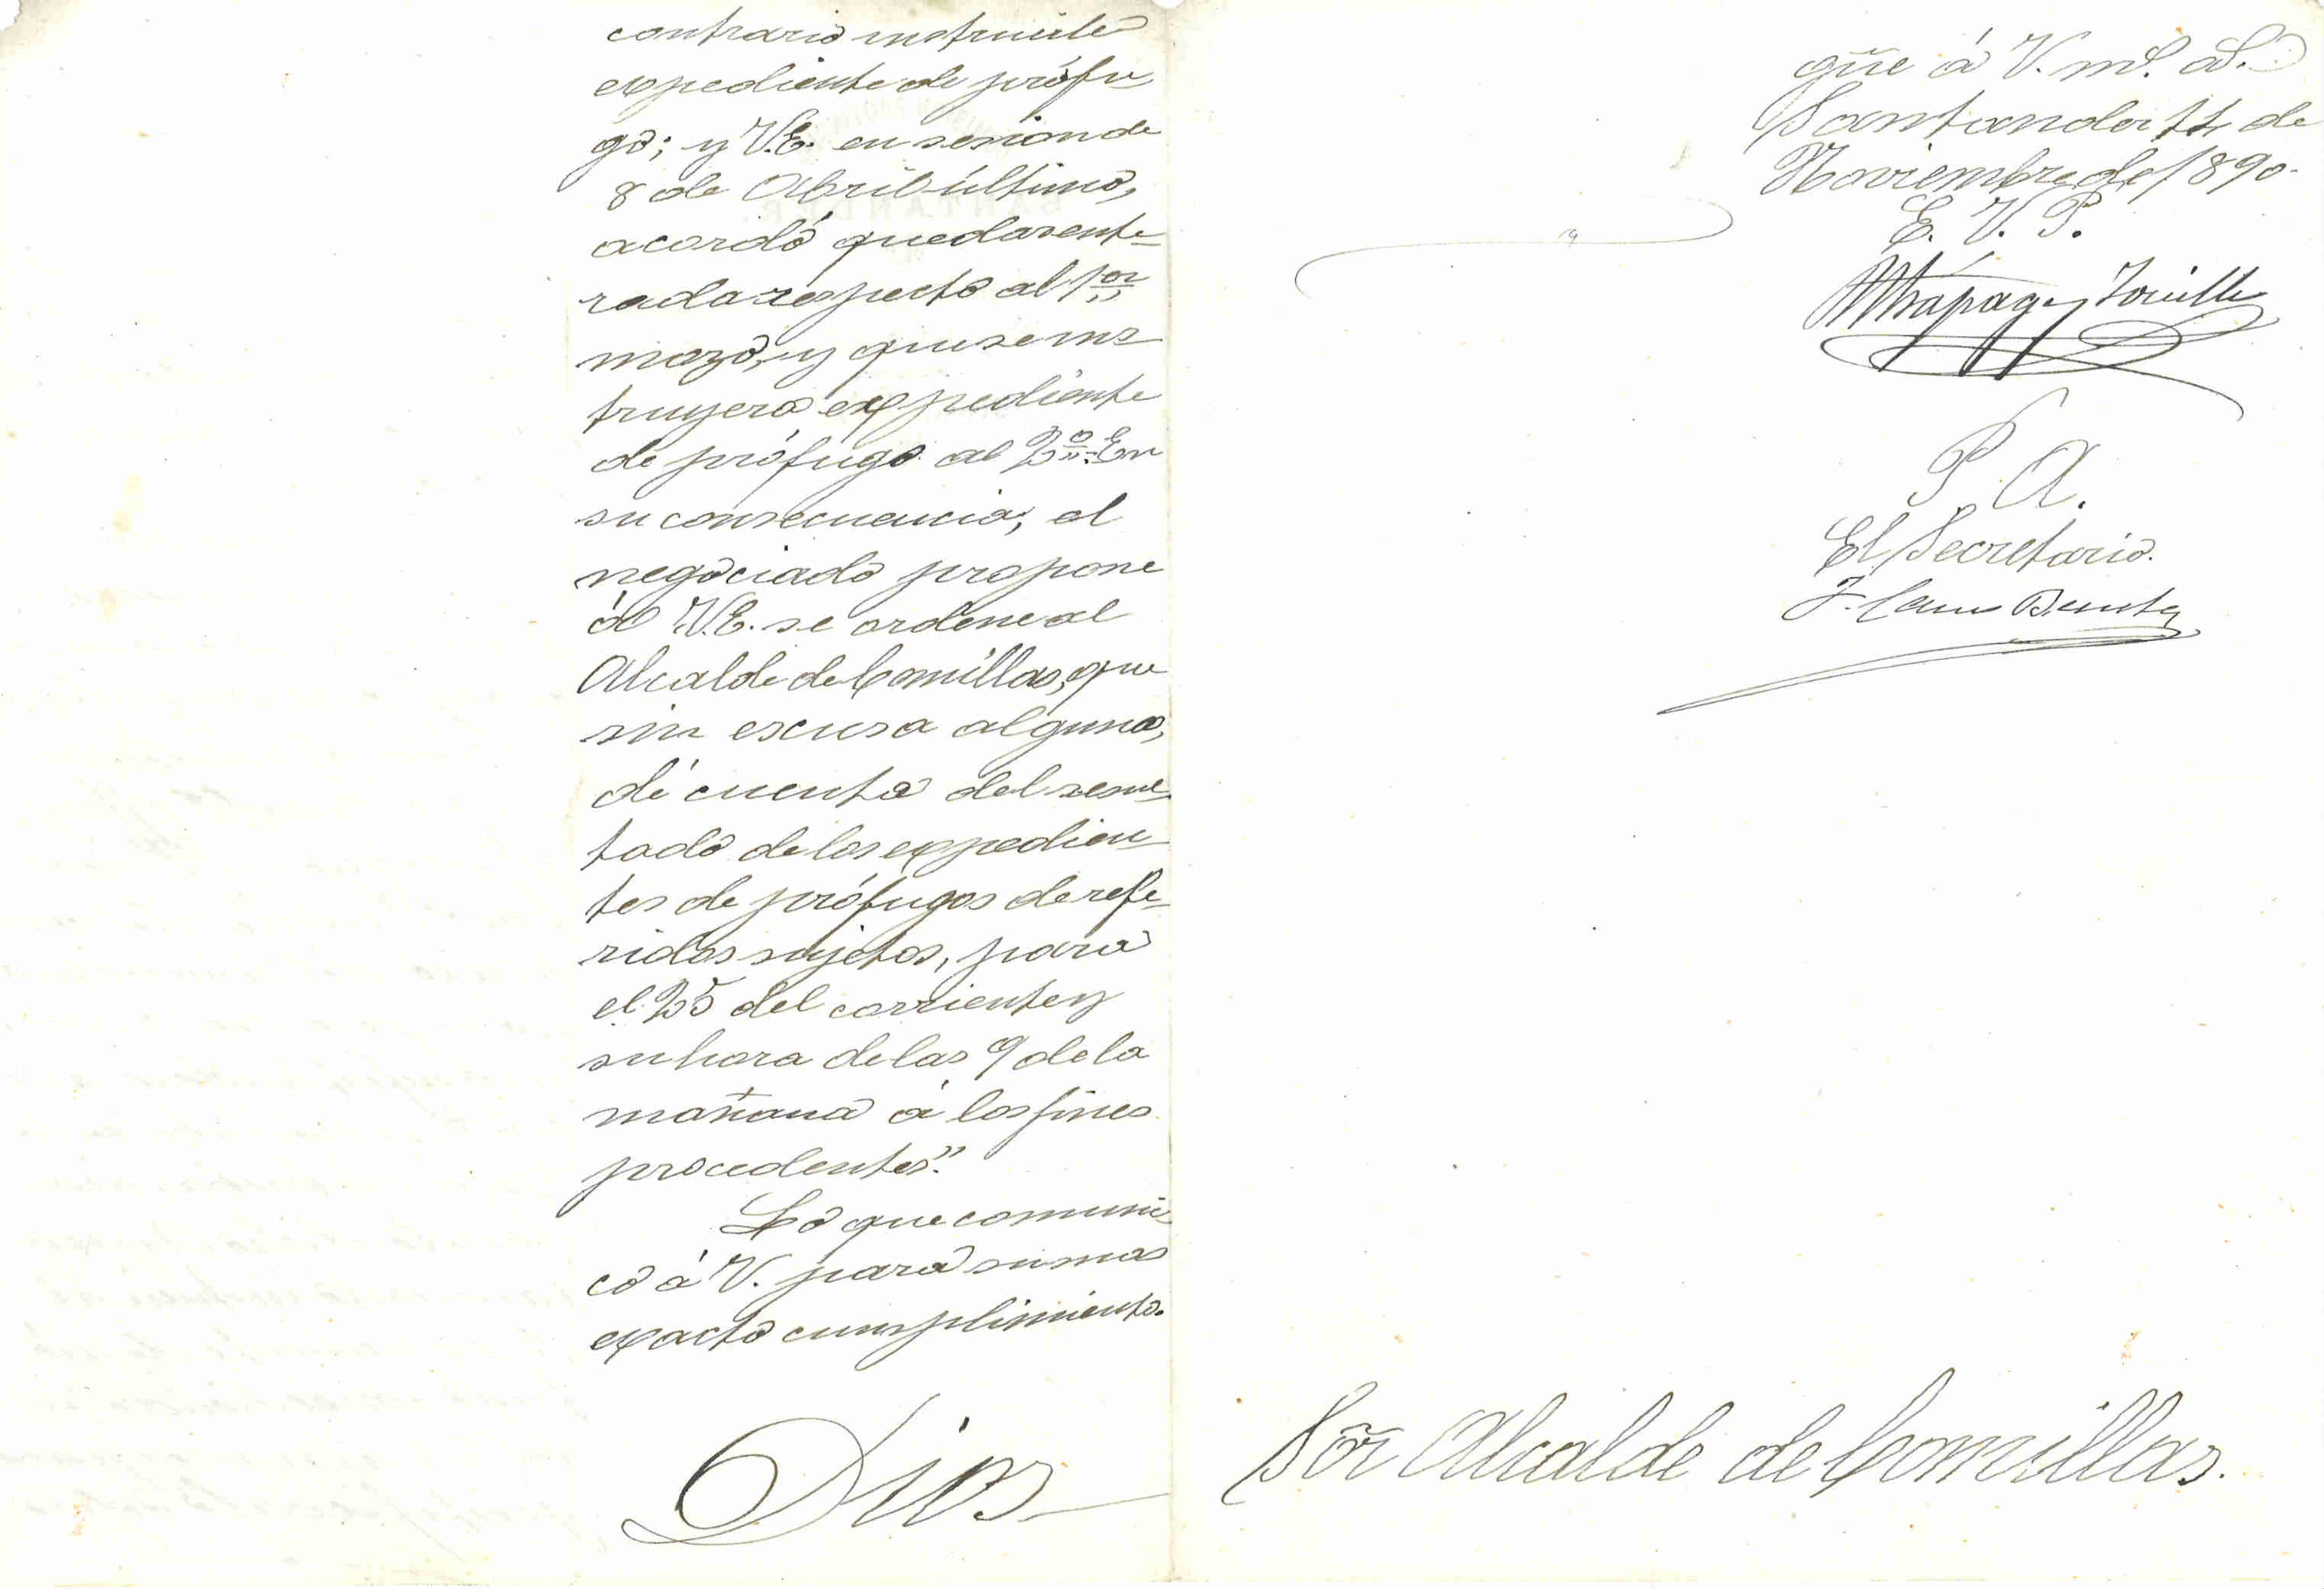 contrario instruirle
expediente de prófu
go; y V.E. en sesion de
8 de Abril último,
acordó quedar ente-
rada respecto al 1.er
mozo, y que se ins-
truyera expediente
de prófugo al 2.º En
su consecuencia, el
negociado propone
á V.E. se ordene al
Alcalde de Comillas, que
sin escusa alguna,
dé cuenta del resul-
tado de los expedien-
tes de prófugos de refe-
ridos sujetos, para
el 25 del corriente y
su hora de las 9 de la
mañana á los fines
procedentes."
Lo que comuni
co á V. para su mas
exacto cumplimiento.
Dios
gũe á V. m.s a.s
Santander 14 de
Noviembre de 1890.
E. V. P.
P. A.
El Secretario.
Sõr Alcalde de Comillas.